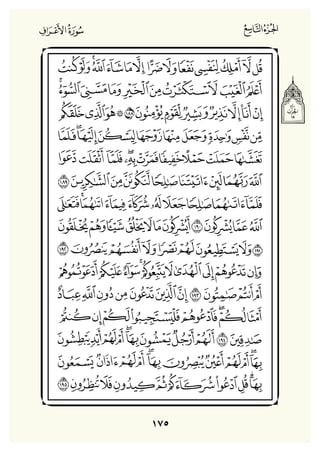 سُورَةُ الأَعْرَافِ
الجُزْءُ التَّاسِعُ
قُل لَّآ أَمْلِكُ لِنَفْسِى نَفْعًا وَلَا ضَرًّا إِلَّا مَا شَآءَ ٱللَّهُ وَلَوْ كُنتُ
أَعْلَمُ ٱلْغَيْبَ لَٱسْتَكْثَرْتُ مِنَ ٱلْخَيْرِ وَمَا مَسَّنِىَ ٱلسُّوٓءُ
إِنْ أَنَا۠ إِلَّا نَذِيرٌ وَبَشِيرٌ لِّقَوْمٍ يُؤْمِنُونَ ١٨٨ ۞ هُوَ ٱلَّذِى خَلَقَكُم
مِّن نَّفْسٍ وَٰحِدَةٍ وَجَعَلَ مِنْهَا زَوْجَهَا لِيَسْكُنَ إِلَيْهَا فَلَمَّا
تَغَشَّىٰهَا حَمَلَتْ حَمْلًا خَفِيفًا فَمَرَّتْ بِهِۦ فَلَمَّآ أَثْقَلَت دَّعَوَا
ٱللَّهَ رَبَّهُمَا لَئِنْ ءَاتَيْتَنَا صَٰلِحًا لَّنَكُونَنَّ مِنَ ٱلشَّٰكِرِينَ ١٨٩
فَلَمَّآ ءَاتَىٰهُمَا صَٰلِحًا جَعَلَا لَهُۥ شُرَكَآءَ فِيمَآ ءَاتَىٰهُمَا فَتَعَٰلَى
ٱللَّهُ عَمَّا يُشْرِكُونَ ١٩٠ أَيُشْرِكُونَ مَا لَا يَخْلُقُ شَيْـًٔا وَهُمْ يُخْلَقُونَ
١٩١ وَلَا يَسْتَطِيعُونَ لَهُمْ نَصْرًا وَلَآ أَنفُسَهُمْ يَنصُرُونَ ١٩٢
وَإِن تَدْعُوهُمْ إِلَى ٱلْهُدَىٰ لَا يَتَّبِعُوكُمْ سَوَآءٌ عَلَيْكُمْ أَدَعَوْتُمُوهُمْ
أَمْ أَنتُمْ صَٰمِتُونَ ١٩٣ إِنَّ ٱلَّذِينَ تَدْعُونَ مِن دُونِ ٱللَّهِ عِبَادٌ
أَمْثَالُكُمْ فَٱدْعُوهُمْ فَلْيَسْتَجِيبُوا۟ لَكُمْ إِن كُنتُمْ
صَٰدِقِينَ ١٩٤ أَلَهُمْ أَرْجُلٌ يَمْشُونَ بِهَآ أَمْ لَهُمْ أَيْدٍ يَبْطِشُونَ
بِهَآ أَمْ لَهُمْ أَعْيُنٌ يُبْصِرُونَ بِهَآ أَمْ لَهُمْ ءَاذَانٌ يَسْمَعُونَ
بِهَا قُلِ ٱدْعُوا۟ شُرَكَآءَكُمْ ثُمَّ كِيدُونِ فَلَا تُنظِرُونِ ١٩٥
١٧٥